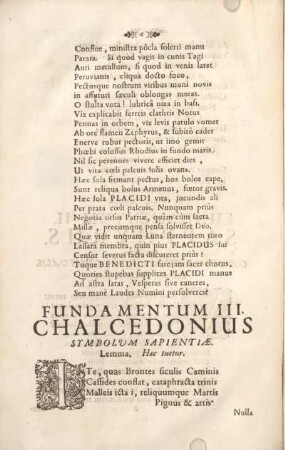 Constue, ministra pôcla solerti manu
Parata. Si quod vagis in cunis Tagi
Auri metallum, si quod in venis latet
Peruvianis, eliqua docto foco,
Pectusque nostrum viribus muni novis
in assuturi sæculi oblongas metas.
O stulta vota! lubricâ nixa in basi.
Vix explicabit ferreis clathris Notus
Pennas in orbem, vix levis patulo vomet
Ab ore flamen Zephyrus, & subitò cadet
Enerve robur pectoris, ut imo gemit
Phœbi colossus Rhodius in fundo maris.
Nil sic perennes vivere efficiet dies,
Ut vita cœli pascuis solis ovans.
Hæc sola firmant pectus, hos bolos cape,
Sunt reliqua bolus Armenus, fœtor gravis.
Hæc sola PLACIDI vita, jucundis ali
Per prata cœli pascuis. Nunquam priùs
Negotia orsus Patriæ, quàm cùm sacra
Missæ, precumque pensa solvisset Deo.
Quæ vidit unquam Luna sternentem toro
Lassata membra, quin pius PLACIDUS sui
Censor severus facta discuteret priùs?
Tuque BENEDICTI sacrjam sacet chorus,
Quoties stupebas supplices PLACIDI manus
Ad astra latas, Vesperas sive caneres,
Seu manè Laudes Numini persolveres?
FUNDAMENTUM III.
CHALCEDONIUS
SYMBOLUM SAPIENTIÆ.
Lemma, Hac tuetur.
ITe, quas Brontes siculis Caminis
Cassides conflat, cataphracta trinis
Malleis icta i, reliquumque Martis
Pignus & artis
Nulla